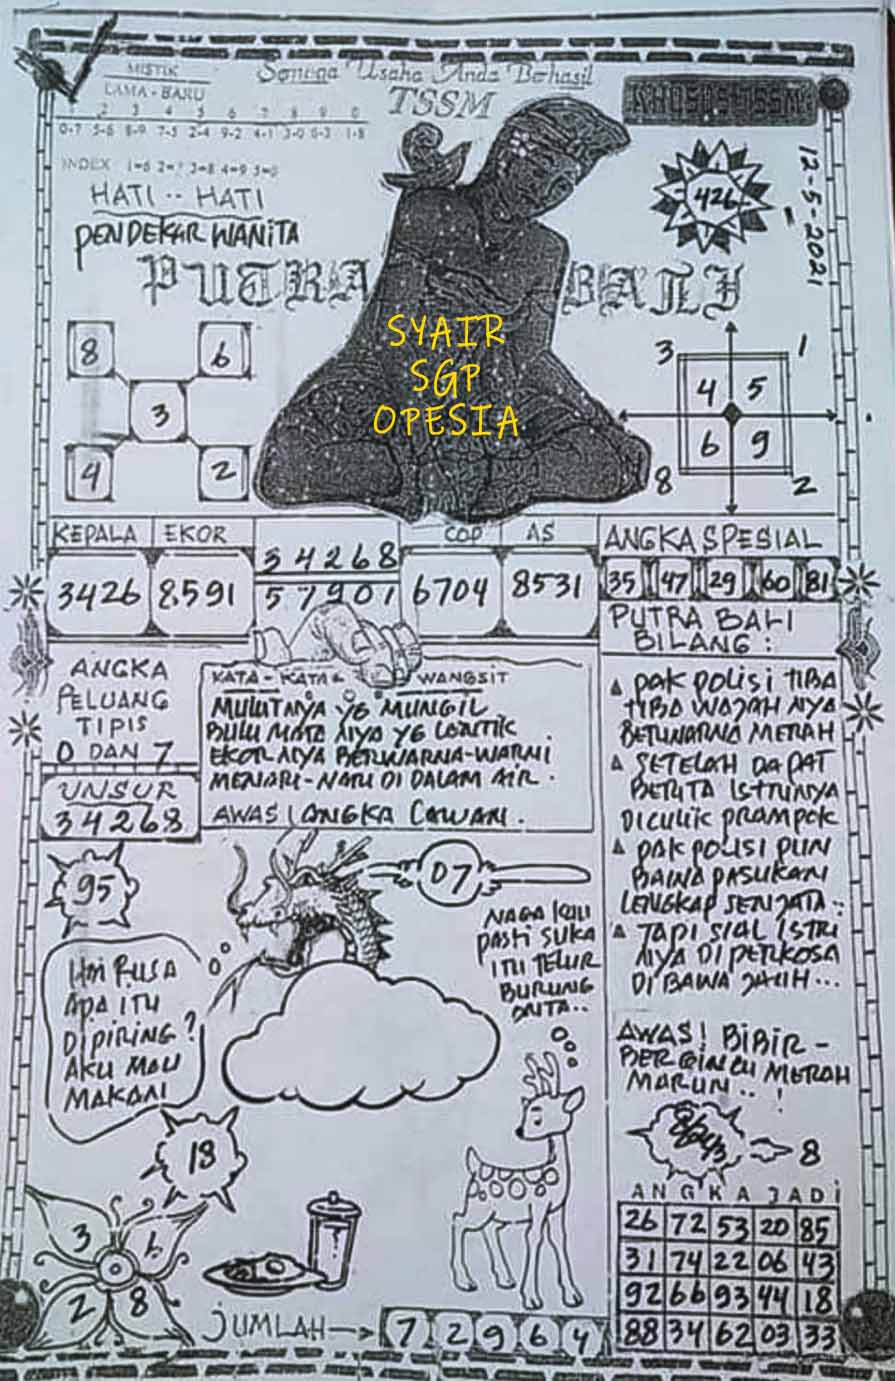 MISTIK
LAMA - BARU
1 2 3 4 5 6 7 8 9 0
0-7 5-6 8-9 7-5 2-4 9-2 4-1 3-0 6-3 1-8
INDEX 1=6 2=7 3=8 4=9 5=0
Semoga Usaha Anda Berhasil
TSSM
KHUSUS TSSM
12-5-2021
426
HATI-HATI
PENDEKAR WANITA
PUTRA BALI
SYAIR
SGP
OPESIA
8 6
3
4 2
3 1
4 5
6 9
8 2
KEPALA EKOR
3426 8591
34268
57901
COP AS
6704 8531
ANGKA SPESIAL
35 47 29 60 81
ANGKA
PELUANG
TIPIS
0 DAN 7
UNSUR
34268
KATA-KATA WANGSIT
MULUTNYA YG MUNGIL
BULU MATA NYA YG LENTIK
EKOR NYA BERWARNA-WARNI
MENARI-NARI DI DALAM AIR.
AWAS ANGKA CAWAN.
PUTRA BALI
BILANG:
PAK POLISI TIBA
TIBA WAJAH NYA
BERWARNA MERAH
SETELAH DAPAT
BERITA ISTRINYA
DICULIK PRAMPOK
PAK POLISI PUN
BAWA PASUKAN
LENGKAP SENJATA..
TAPI SIAL ISTRI
NYA DI PERKOSA
DI BAWA JAUH...
AWAS! BIBIR-
BERGINCU MERAH
MARUN..!
8
95
07
HAI RUSA
APA ITU
DIPIRING?
AKU MAU
MAKAN
NAGA KULI
PASTI SUKA
ITU TELUR
BURUNG
UNTA..
18
3 6
2 8
JUMLAH
7 2 9 6 4
ANGKA JADI
26 72 53 20 85
31 74 22 06 43
92 66 93 44 18
88 34 62 03 33